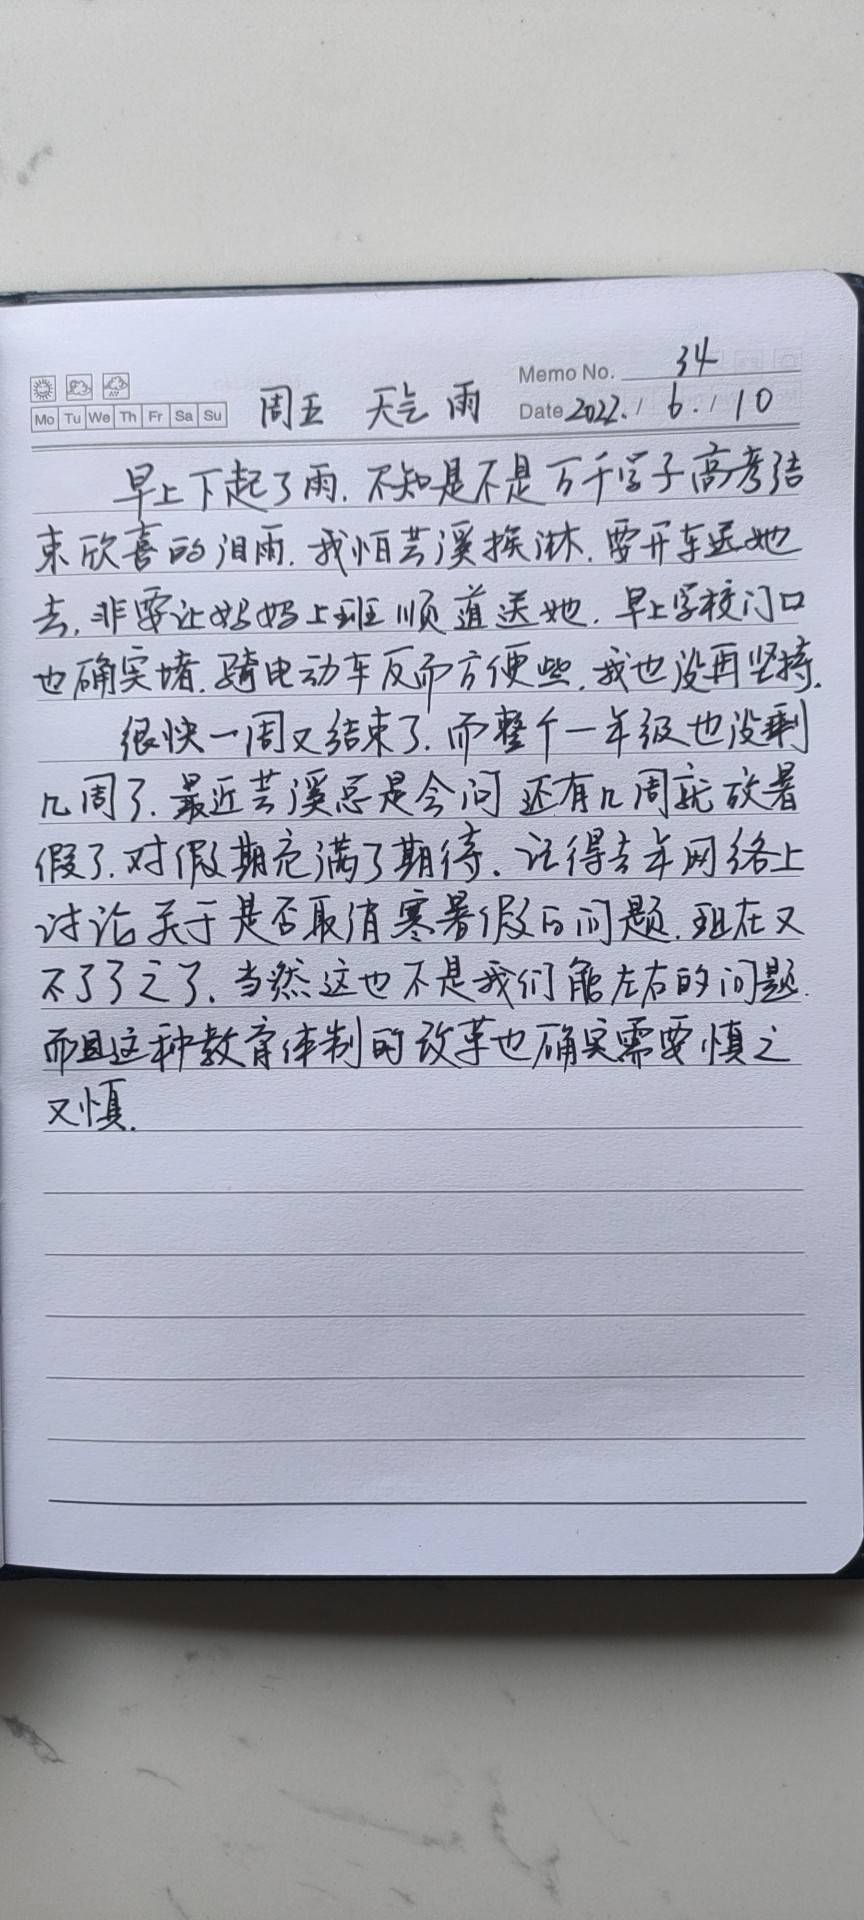 Memo No. 34
Mo Tu We Th Fr Sa Su 周五 天气 雨 Date 2022. / 6. / 10
早上下起了雨. 不知是不是万千学子高考结
束欣喜的泪雨. 我怕芸溪挨淋. 要开车送她
去, 非要让妈妈上班顺道送她. 早上学校门口
也确实堵. 骑电动车反而方便些. 我也没再坚持.
很快一周又结束了. 而整个一年级也没剩
几周了. 最近芸溪总是会问 还有几周就放暑
假了. 对假期充满了期待. 记得去年网络上
讨论关于是否取消寒暑假的问题. 现在又
不了了之了. 当然这也不是我们能左右的问题.
而且这种教育体制的改革也确实需要慎之
又慎.